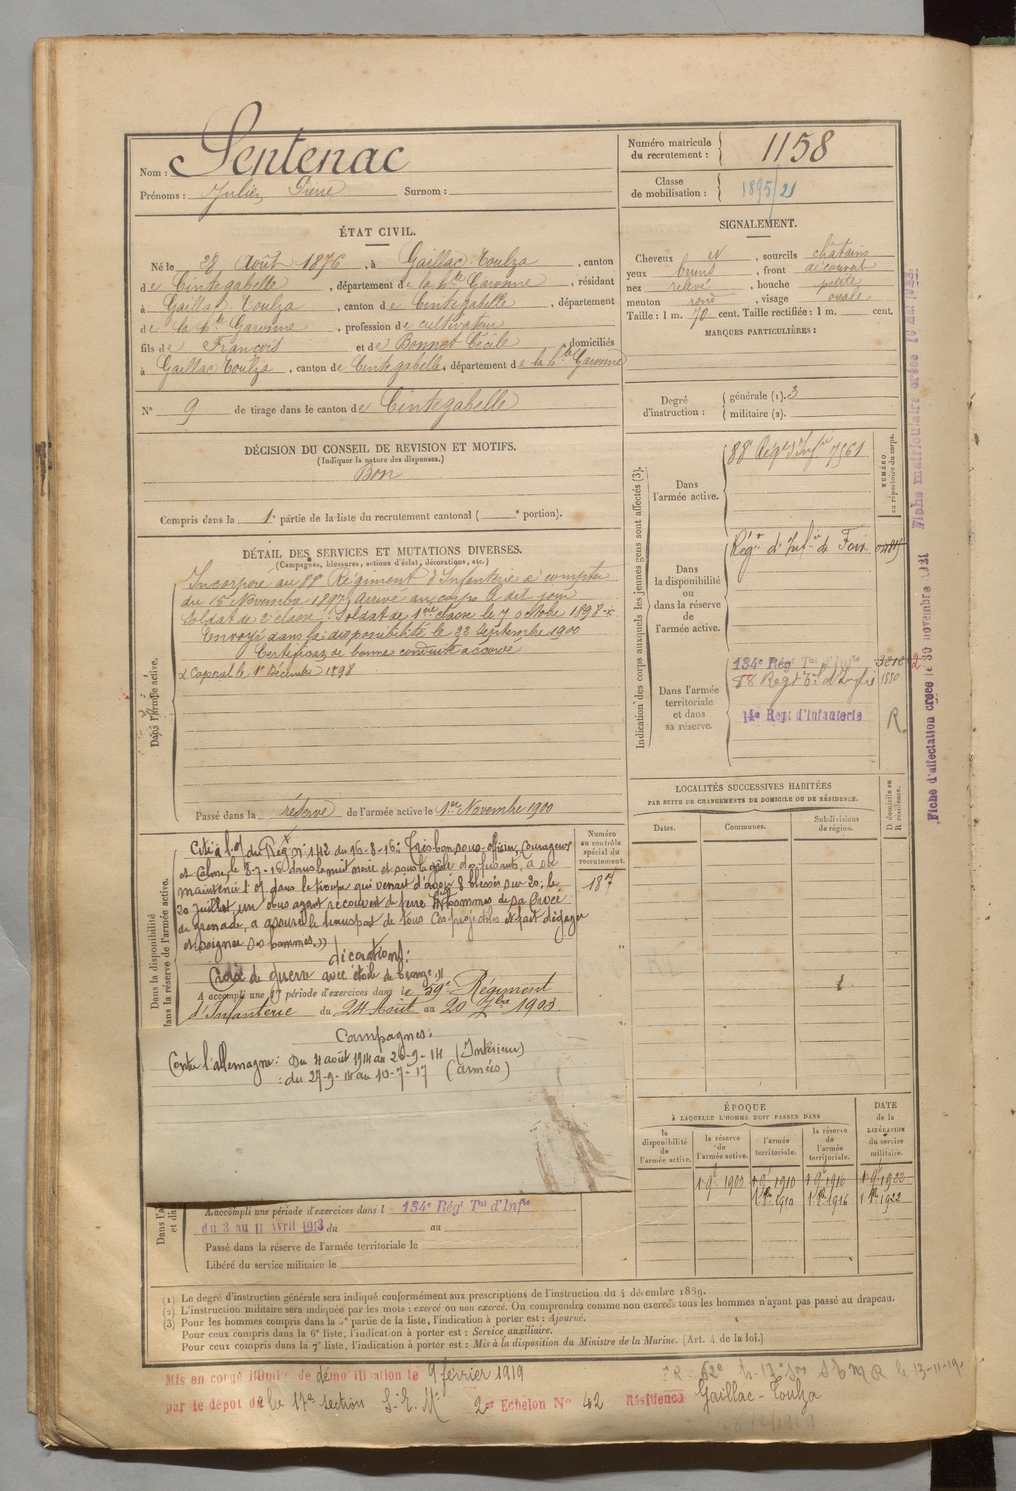 Nom : Sentenac
Prénoms : Julien Pierre Surnom :
Numéro matricule du recrutement : 1158
Classe de mobilisation : 1895/21
ÉTAT CIVIL.
Né le 28 Août 1876, à Gaillac-Toulza, canton
de Cintegabelle, département de la Hte Garonne, résidant
à Gaillac Toulza, canton de Cintegabelle, département
de la Hte Garonne, profession de cultivateur
fils de François et de Bonnet Cécile, domiciliés
à Gaillac Toulza, canton de Cintegabelle, département de la Hte Garonne
N° 9 de tirage dans le canton de Cintegabelle
SIGNALEMENT.
Cheveux et, sourcils châtains
yeux bruns, front découvert
nez relevé, bouche petite
menton rond, visage ovale
Taille : 1 m. 70 cent. Taille rectifiée : 1 m. cent.
MARQUES PARTICULIÈRES :
Degré d'instruction : générale (1). 3
militaire (2).
DÉCISION DU CONSEIL DE REVISION ET MOTIFS.
(Indiquer la nature des dispenses.)
Bon
Compris dans la 1e partie de la liste du recrutement cantonal ( e portion).
DÉTAIL DES SERVICES ET MUTATIONS DIVERSES.
(Campagnes, blessures, actions d'éclat, décorations, etc.)
Dans l'armée active.
Incorporé au 88e Régiment d'Infanterie à compter
du 15 Novembre 1897. Arrivé au corps le dit jour
soldat de 2e classe. Soldat de 1ère classe le 7 octobre 1898 x
Envoyé dans la disponibilité le 22 Septembre 1900
Certificat de bonne conduite accordé
x Caporal le 1er Décembre 1898
Passé dans la réserve de l'armée active le 1er Novembre 1900
Indication des corps auxquels les jeunes gens sont affectés (3).
NUMÉRO au répertoire du corps.
Dans l'armée active.
88e Régt d'Infie 7561
Dans la disponibilité ou dans la réserve de l'armée active.
Régt d'Infie de Foix
Dans l'armée territoriale et dans sa réserve.
134e Régt Tal d'Infie
88 Regt Tal d'Infie 1330
14e Regt d'Infanterie R
Fiche matriculaire créée
Fiche d'affectation créée le 30 novembre 1921
LOCALITÉS SUCCESSIVES HABITÉES
PAR SUITE DE CHANGEMENTS DE DOMICILE OU DE RÉSIDENCE.
Dates. Communes. Subdivisions de région. D domicile ou R résidence.
Dans la disponibilité ou dans la réserve de l'armée active.
Numéro au contrôle spécial du recrutement.
187
Cité à l'O/ du Régt n° 142 du 16-8-16: Très bon sous-officier, Courageux
et Calme, le 8-7-16 dans la nuit noire et sous la grêle de fusants, a su
maintenir l'O/ dans la troupe qui venait d'avoir 8 blessés sur 20; le
20 juillet, un obus ayant recouvert de terre dix hommes de sa Croix
de grenade, a assuré le transport de tous ces projectiles et fait dégager
et soigner ses hommes.))
décorations:
Croix de guerre avec étoile de bronze.))
A accompli une 1e période d'exercices dans le 59e Régiment
d'Infanterie du 24 Août au 20 7bre 1903.
Campagnes:
Contre l'allemagne: Du 4 août 1914 au 26-9-14 (Intérieur)
: du 27-9-14 au 10-7-17 (armées)
ÉPOQUE
À LAQUELLE L'HOMME DOIT PASSER DANS
DATE de la LIBÉRATION du service militaire.
la disponibilité de l'armée active. la réserve de l'armée active. l'armée territoriale. la réserve de l'armée territoriale.
1 9bre 1900 1 9bre 1910 1 9bre 1916 1 9bre 1922
1 8bre 1910 1 8bre 1916 1 8bre 1922
A accompli une période d'exercices dans l 134e Régt Tal d'Infie
du 3 au 11 Avril 1913 du au
Passé dans la réserve de l'armée territoriale le
Libéré du service militaire le
(1) Le degré d'instruction générale sera indiqué conformément aux prescriptions de l'instruction du 4 décembre 1889.
(2) L'instruction militaire sera indiquée par les mots : exercé ou non exercé. On comprendra comme non exercés tous les hommes n'ayant pas passé au drapeau.
(3) Pour les hommes compris dans la 5e partie de la liste, l'indication à porter est : Ajourné.
Pour ceux compris dans la 6e liste, l'indication à porter est : Service auxiliaire.
Pour ceux compris dans la 7e liste, l'indication à porter est : Mis à la disposition du Ministre de la Marine. (Art. 4 de la loi.)
Mis en congé illimité de démobilisation le 9 février 1919
par le dépôt de la 17e section S.E.M. 2er Echelon N° 42 Résidence Gaillac-Toulza